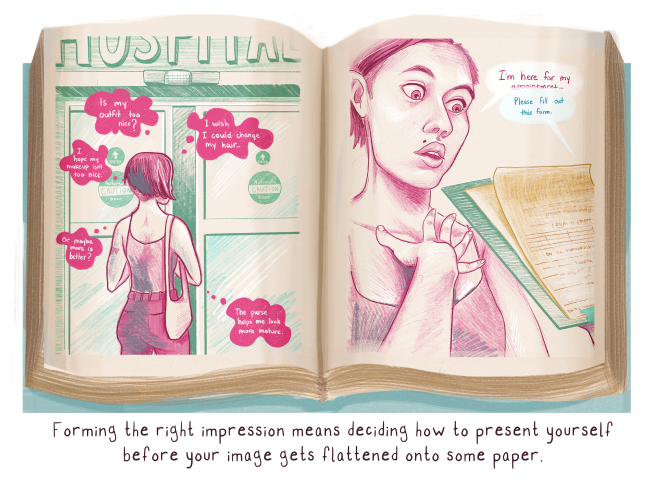 HOSPITAL
Is my
outfit too
nice?
I wish
I could change
my hair...
I
hope my
makeup isn't
too nice.
CAUTION
CAUTION
Or maybe
more is
better?
The purse
helps me look
more mature.
I'm here for my
appointment...
Please fill out
this form.
Forming the right impression means deciding how to present yourself
before your image gets flattened onto some paper.